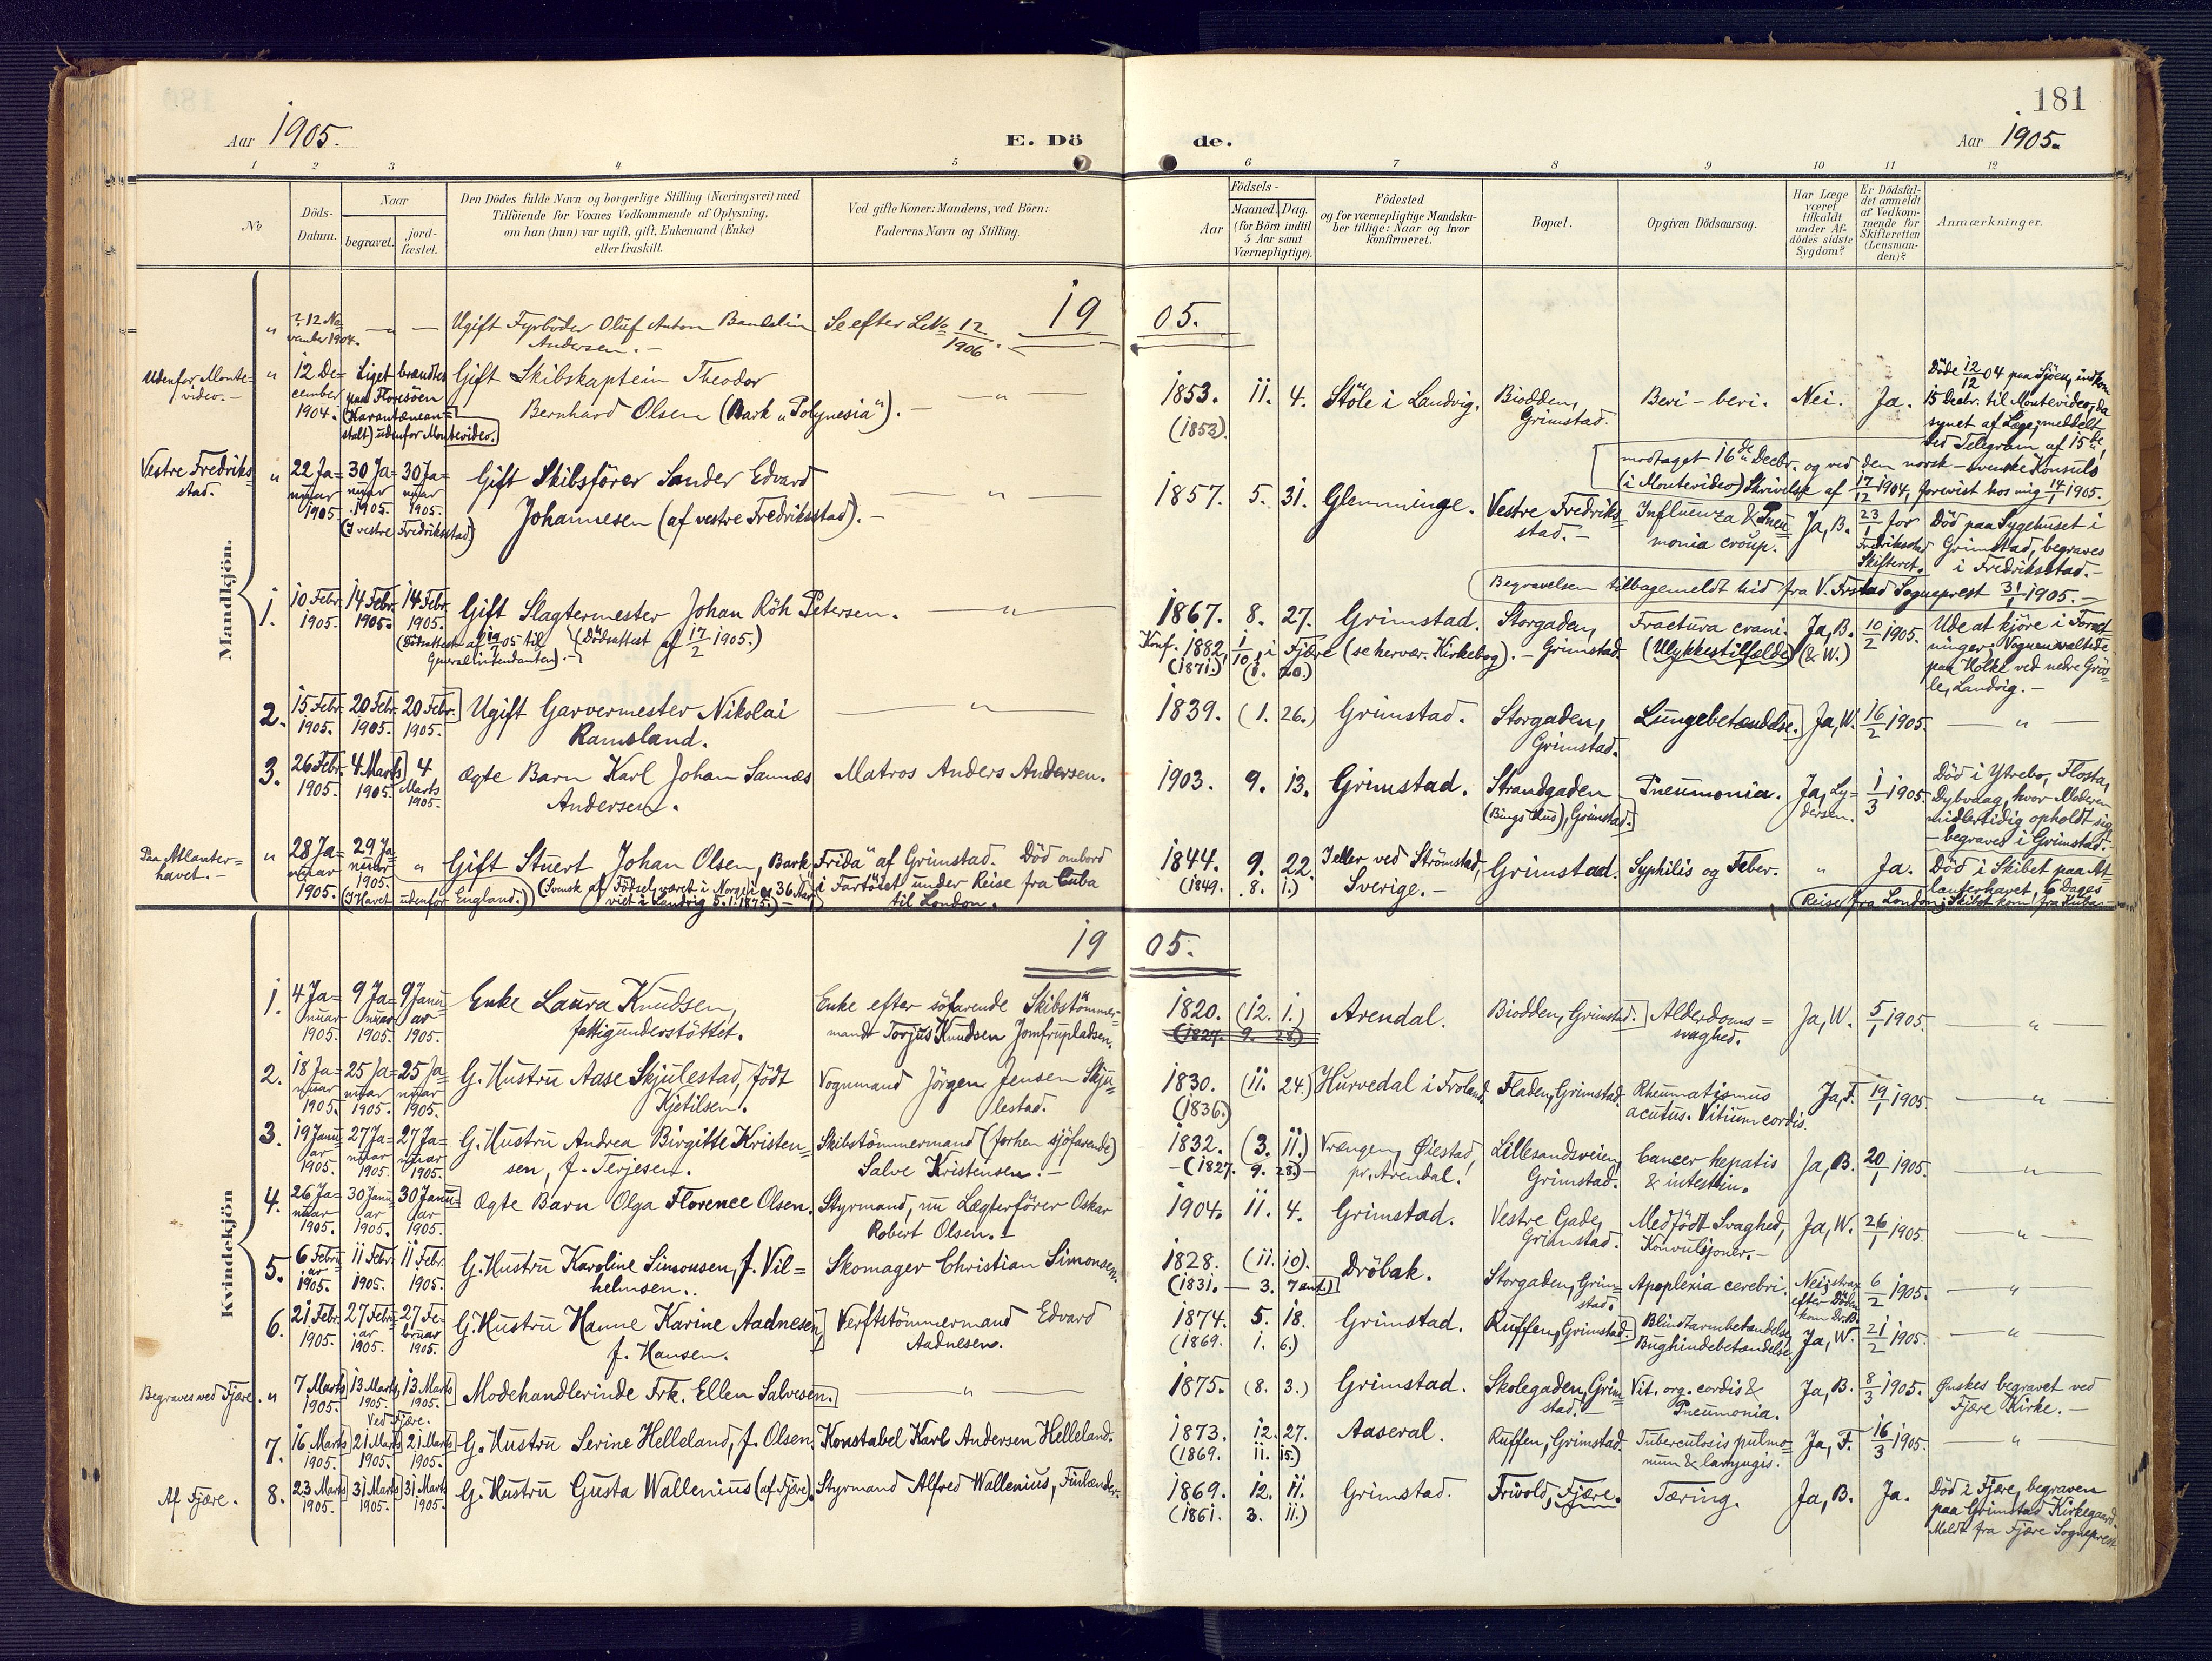 181
Aar 1905.
E. Dö
de.
Aar 1905.
1 2 3 4 5 6 7 8 9 10 11 12
No
Döds-
Datum.
Naar
begravet.
jord-
fæstet.
Den Dödes fulde Navn og borgerlige Stilling (Næringsvei) med
Tilföiende for Voxnes Vedkommende af Oplysning,
om han (hun) var ugift, gift, Enkemand (Enke)
eller fraskilt.
Ved gifte Koner: Mandens, ved Börn:
Faderens Navn og Stilling.
Födsels-
Aar
Maaned. Dag.
(for Börn indtil
5 Aar samt
Værnepligtige).
Födested
og for værnepligtige Mandska-
ber tillige: Naar og hvor
konfirmeret.
Bopæl.
Opgiven Dödsaarsag.
Har Læge
været
tilkaldt
under Af-
dödes sidste
Sygdom?
Er Dödsfal-
det anmeldt
af Vedkom-
mende for
Skifteretten
(Lensman-
den)?
Anmærkninger.
Mandkjön.
19
05.
" ? 12 No-
vember 1904. — " —
Ugift Fyrböder Oluf Anton Bandelin
Andersen. —
Se efter LNo 12/1906.
Udenfor Monte-
video. —
" 12 De-
cember
1904.
Liget brændtes
paa Floresöen
(Karantænean-
stalt) udenfor Montevideo.
Gift Skibskaptein Theodor
Bernhard Olsen (Bark "Polynesia"). —
"
1853. 11. 4.
(1853).
Stöle i Landvig.
Biodden,
Grimstad.
Beri-beri.
Nei.
Ja.
Döde 12/12 04 paa Sjöen, indkom
15 Decbr. til Montevideo, da
synet af Læge; meddelt
ved Telegram af 15de,
modtaget 16de Decbr. og ved den norsk-svenske Konsuls
(i Montevideo) Skrivelse af 17/12 1904, forevist hos mig 14/1 1905.
Vestre Fredriks-
stad.
" 22 Ja-
nuar
1905
30 Ja-
nuar
1905.
30 Ja-
nuar
1905.
(I vestre Fredriksstad)
Gift Skibsförer Sander Edvard
Johannesen (af vestre Fredriksstad). —
"
1857. 5. 31.
Glemminge.
Vestre Fredriks-
stad. —
Influenza & Pneu-
monia croup.
Ja, B.
23/1 for
Fredriksstad
Skifteret.
Död paa Sygehuset i
Grimstad, begraves
i Fredriksstad. —
Begravelsen tilbagemeldt hid fra V. Frstad Sogneprest 31/1 1905. —
1. 10 Febr.
1905.
14 Febr.
1905.
14 Febr.
1905.
Gift Slagtermester Johan Röh Petersen.
(Dödsattest af 17/2 1905.)
"
1867. 8. 27.
Grimstad.
Konf. 1882, 1/10, i Fjære (se hervær. Kirkebog). —
(1871.) (1. 20.)
Storgaden,
Grimstad.
Fractura crani.
(Ulykkestilfælde)
Ja, B.
(& W.)
10/2 1905.
Ude at kjöre i Forret-
ninger; Vognen væltede
paa Holke ved nedre Grös-
le, Landvig. —
2. 15 Febr.
1905.
20 Febr.
1905.
20 Febr.
1905.
Ugift Garvermester Nikolai
Ramsland.
"
1839. (1. 26.)
Grimstad.
Storgaden,
Grimstad.
Lungebetændelse.
Ja, W.
16/2 1905.
— " —
3. 26 Febr.
1905.
4 Marts
1905.
4
Marts
1905.
Ægte Barn Karl Johan Sannæs
Andersen.
Matros Anders Andersen.
1903. 9. 13.
Grimstad.
Strandgaden
(Bings Hus), Grimstad.
Pneumonia.
Ja, Ly-
dersen.
1/3 1905.
Död i Ytrebö, Flosta,
Dybvaag, hvor Moderen
midlertidig opholdt sig
— begraved i Grimstad. —
Paa Atlanter-
havet. —
" 28 Ja-
nuar
1905.
29 Ja-
nuar
1905. "
(I Havet udenfor England.)
Gift Stuert Johan Olsen, Bark "Frida" af Grimstad. Död ombord
(Svensk af Födsel, været i Norge i ca 36 Aar, i Fartöiet under Reise fra Cuba
viet i Landvig 5.1.1875.) — til London.
1844. 9. 22.
(1849. 8. 1.)
I eller ved Strömstad,
Sverige. —
Grimstad.
Syphilis og Feber.
"
Ja.
Död i Skibet paa At-
lanterhavet, 6 Dages
Reise fra London; Skibet kom fra Kuba —
Kvindekjön
19
05.
1. 4 Ja-
nuar
1905.
9 Ja-
nuar
1905.
9 Janu-
ar
1905.
Enke Laura Knudsen,
fattigunderstöttet.
Enke efter söfarende Skibstömmer-
mand Torjus Knudsen Jomfrupladsen.
1820. (12. 1.)
(1827. 9. 28)
Arendal.
Biodden, Grimstad.
Alderdoms-
svaghed.
Ja, W.
5/1 1905.
"
2. 18 Ja-
nuar
1905.
25 Ja-
nuar
1905.
25 Ja-
nuar
1905.
G. Hustru Aase Skjulestad, födt
Kjetilsen.
Vognmand Jörgen Jensen Skju-
lestad.
1830. (11. 24.)
(1836.)
Hurvedal i Froland.
Fladen, Grimstad.
Rheumatismus
acutus. Vitium cordis.
Ja, F.
19/1 1905.
"
3. 19 Janu-
ar
1905.
27 Ja-
nuar
1905.
27 Ja-
nuar
1905.
G. Hustru Andrea Birgitte Kristen-
sen, f. Terjesen.
Skibstömmermand (forhen sjöfarende)
Salve Kristensen. —
1832. (3. 11.)
(1827. 9. 28) —
Vrængen, Öiestad,
pr. Arendal!
Lillesandsveien,
Grimstad.
Cancer hepatis
& intestin.
Ja, B.
20/1 1905.
"
4. 26 Ja-
nuar
1905.
30 Janu-
ar
1905.
30 Janu-
ar
1905.
Ægte Barn Olga Florence Olsen.
Styrmand, nu Lægterförer Oskar
Robert Olsen. —
1904. 11. 4.
Grimstad.
Vestre Gade,
Grimstad.
Medfödt Svaghed,
Konvulsjoner. —
Ja, W.
26/1 1905.
"
5. 6 Febru-
ar
1905.
11 Febr.
1905.
11 Febr.
1905.
G. Hustru Karoline Simonsen, f. Vil-
helmsen.
Skomager Christian Simonsen.
1828. (11. 10).
(1831. — 3. 7 ant.)
Dröbak.
Storgaden, Grim-
stad.
Apoplexia cerebri.
Nei; strax
efter Döden
kom Dr. B.
6/2 1905.
"
6. 21 Febr.
1905.
27 Febru-
ar
1905.
27 Fe-
bruar
1905.
G. Hustru Hanne Karine Aadnesen,
f. Hansen.
Verftstömmermand Edvard
Aadnesen.
1874. 5. 18.
(1869. 1. 6.)
Grimstad.
Ruffen, Grimstad.
Blindtarmbetændelse,
Bughindebetændelse.
Ja, W.
21/2 1905.
"
Begraves ved Fjære.
" 7 Marts
1905.
13 Marts
1905.
13 Marts
1905.
Ved Fjære.
Modehandlerinde Frk. Ellen Salvesen.
"
1875. (8. 3.)
Grimstad.
Skolegaden, Grim-
stad. —
Vit. org. cordis &
Pneumonia.
Ja, B.
8/3 1905.
Önskes begravet ved
Fjære Kirke. —
7. 16 Marts
1905.
21 Marts
1905.
21 Marts
1905.
G. Hustru Serine Helleland, f. Olsen.
Konstabel Karl Andersen Helleland.
1873. 12. 27.
(1869. 11. 15.)
Aaseral.
Ruffen, Grimstad.
Tuberculosis pulmo-
num & laryngis.
Ja, F.
16/3 1905.
"
Af Fjære.
8. 23 Marts
1905.
31 Marts
1905.
31 Marts
1905.
G. Hustru Gusta Wallenius (af Fjære).
Styrmand Alfred Wallenius, Finlænder.
1869. 12. 11.
(1861. 3. 11.)
Grimstad.
Frivold, Fjære.
Tæring.
Ja, B.
Ja.
Död i Fjære, begraven
paa Grimstad Kirkegaard.
Meldt fra Fjære Sogneprest.